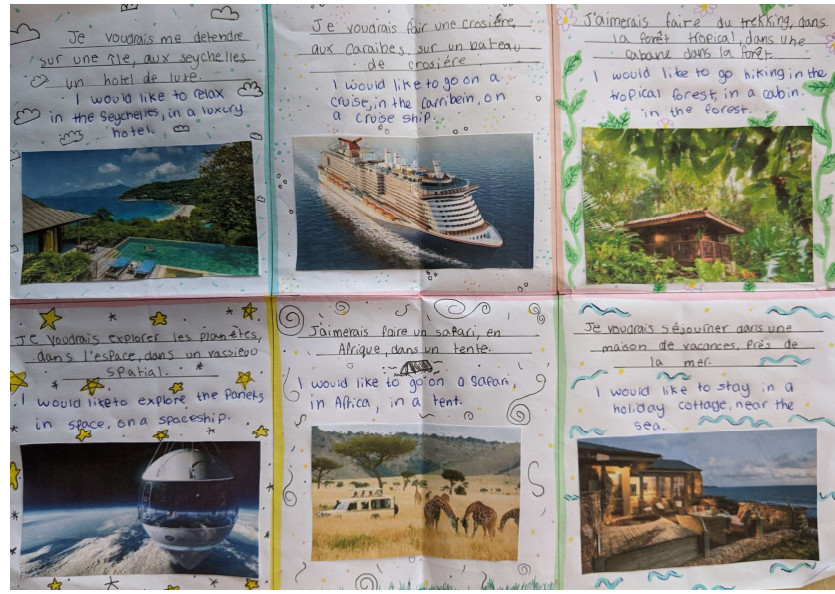 Je voudrais me detendre
sur une île, aux seychelles
un hotel de luxe.
I would like to relax
in the Seychelles, in a luxury
hotel.
Je voudrais fair une crosiére,
aux Caraibes, sur un bateau
de crosiére
I would like to go on a
cruise, in the Carribein, on
a cruise ship.
J'aimerais faire du trekking, dans
la forêt tropical, dans une
cabane dans la forêt.
I would like to go hiking in the
tropical forest, in a cabin
in the forest.
Je voudrais explorer les planètes,
dans l'espace, dans un vassieuo
spatial.
I would like to explore the Panets
in space, on a spaceship.
J'aimerais faire un safari, en
Afrique, dans un tente.
I would like to go on a Safari,
in Africa, in a tent.
Je voudrais séjourner dans une
maison de vacances, Près de
la mer.
I would like to stay in a
holiday cottage, near the
sea.